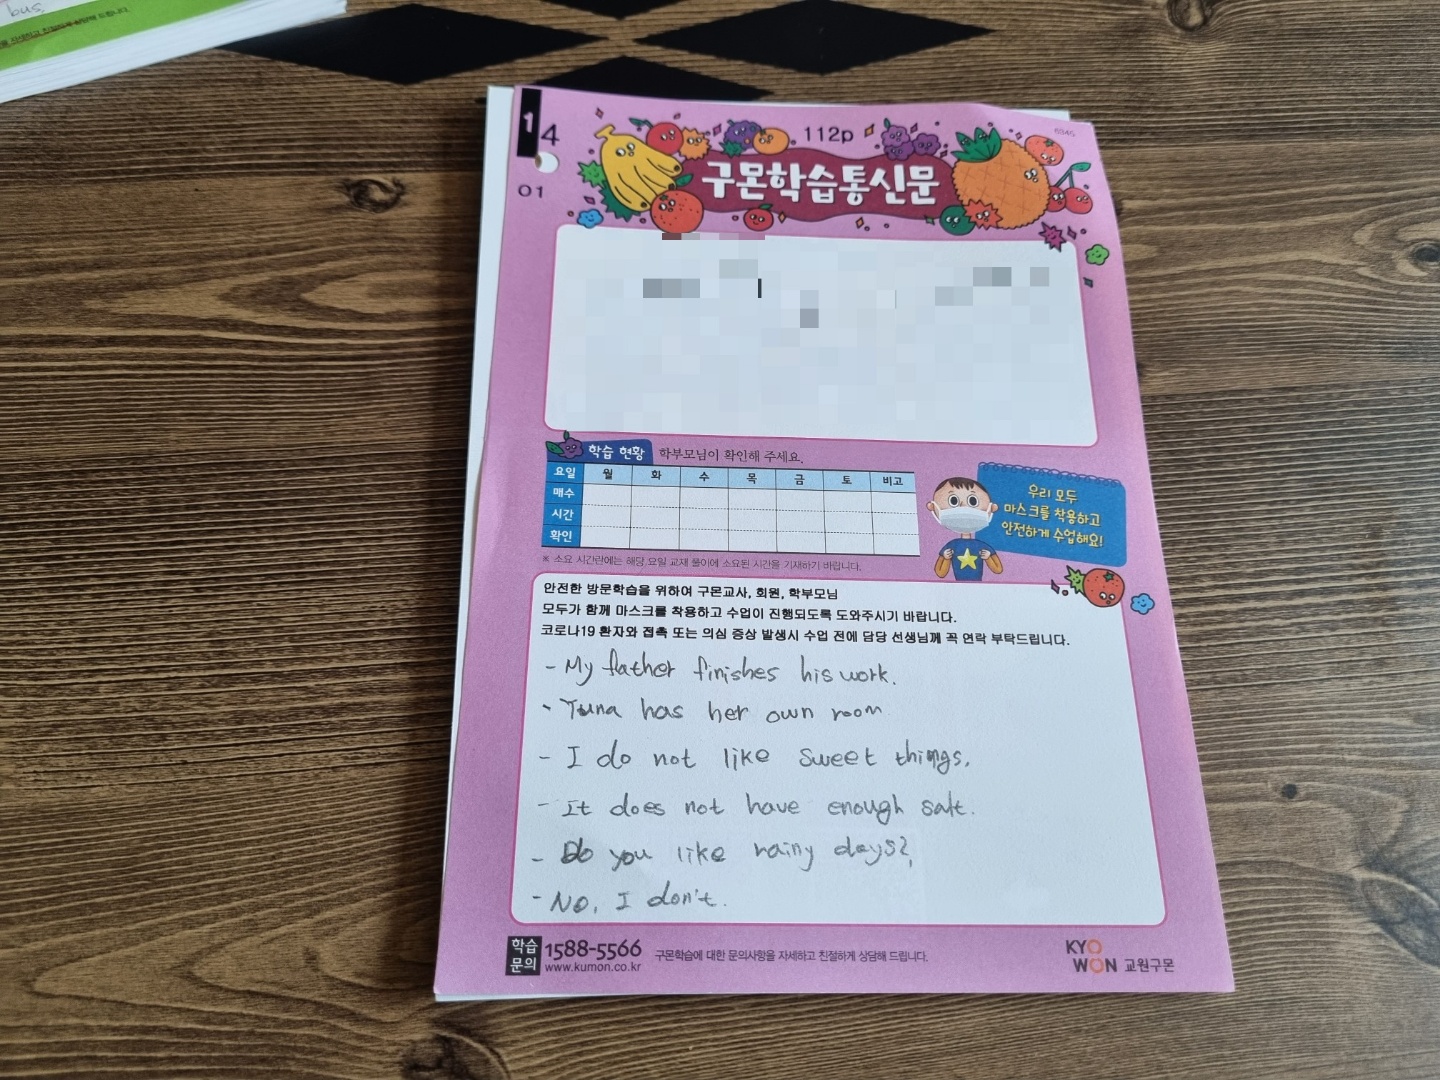 bus,
14
112p
01
구몬학습통신문
학습 현황 학부모님이 확인해 주세요.
요일 월 화 수 목 금 토 비고
매수
시간
확인
※ 소요 시간란에는 해당 요일 교재 풀이에 소요된 시간을 기재하기 바랍니다.
우리 모두
마스크를 착용하고
안전하게 수업해요!
안전한 방문학습을 위하여 구몬교사, 회원, 학부모님
모두가 함께 마스크를 착용하고 수업이 진행되도록 도와주시기 바랍니다.
코로나19 환자와 접촉 또는 의심 증상 발생시 수업 전에 담당 선생님께 꼭 연락 부탁드립니다.
- My father finishes his work.
- Yuna has her own room
- I do not like sweet things.
- It does not have enough salt.
- Do you like rainy days?
- No, I don't.
학습
문의
1588-5566
www.kumon.co.kr
구몬학습에 대한 문의사항을 자세하고 친절하게 상담해 드립니다.
KYO
WON 교원구몬